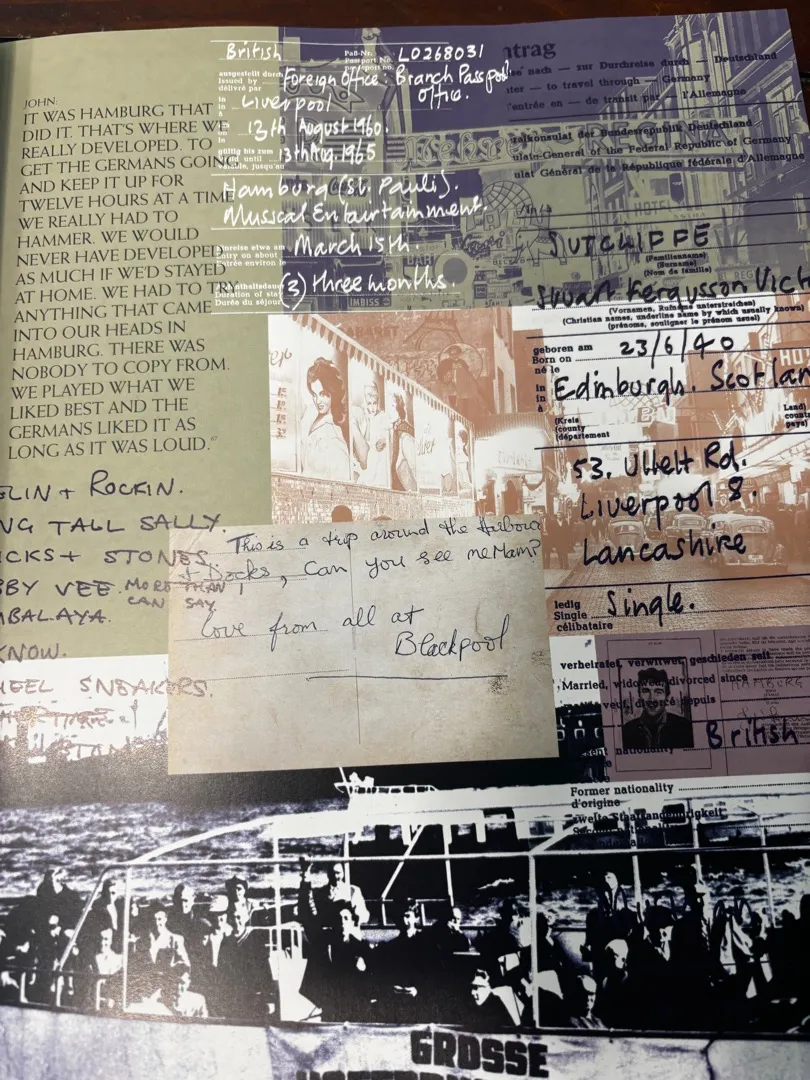 JOHN:
IT WAS HAMBURG THAT
DID IT. THAT'S WHERE WE
REALLY DEVELOPED. TO
GET THE GERMANS GOING
AND KEEP IT UP FOR
TWELVE HOURS AT A TIME
WE REALLY HAD TO
HAMMER. WE WOULD
NEVER HAVE DEVELOPED
AS MUCH IF WE'D STAYED
AT HOME. WE HAD TO TRY
ANYTHING THAT CAME
INTO OUR HEADS IN
HAMBURG. THERE WAS
NOBODY TO COPY FROM.
WE PLAYED WHAT WE
LIKED BEST AND THE
GERMANS LIKED IT AS
LONG AS IT WAS LOUD.67
GLIN + ROCKIN.
NG TALL SALLY.
ICKS + STONES
BBY VEE. MORE THAN I
CAN SAY
MBALAYA.
KNOW.
HEEL SNEAKERS.
British
Paß-Nr.
Passport No. L0268031
ausgestellt durch
Issued by
délivré par
Foreign Office: Branch Passport
Office.
in
in
à
Liverpool
13th August 1960.
gültig bis zum
valid until 13th Aug. 1965
Hamburg (St. Pauli).
Musical Entairtainment.
Einreise etwa am
Entry on about
Entrée environ le
March 15th.
Aufenthaltsdauer
Duration of stay
Durée du séjour
(3) three months.
IMBISS
ntrag
nach — zur Durchreise durch — Deutschland
ter — to travel through — Germany
entrée en — de transit par — l'Allemagne
ralkonsulat der Bundesrepublik Deutschland
ulate-General of the Federal Republic of Germany
ulat Général de la République fédérale d'Allemagne
HOTEL
SUTCLIFFE
(Familienname)
(Surname)
(Nom de famille)
Stuart Fergusson Vict
(Vornamen, Rufname unterstreichen)
(Christian names, underline name by which usually known)
(prénoms, souligner le prénom usuel)
geboren am
Born on
né le
23/6/40
in
in
à
Edinburgh. Scotlan
(Kreis
(county
(département
Land)
count
pays)
53. Ullelt Rd.
Liverpool 8.
Lancashire
ledig
Single
célibataire
Single.
verheiratet, verwitwet, geschieden seit
Married, widowed, divorced since
veuf, divorcé depuis
HAMBURG
sent nationality
British
Former nationality
d'origine
zweite Staatsangehörigkeit
This is a trip around the Harbour
+ Docks, Can you see me Mam?
love from all at
Blackpool
GROSSE